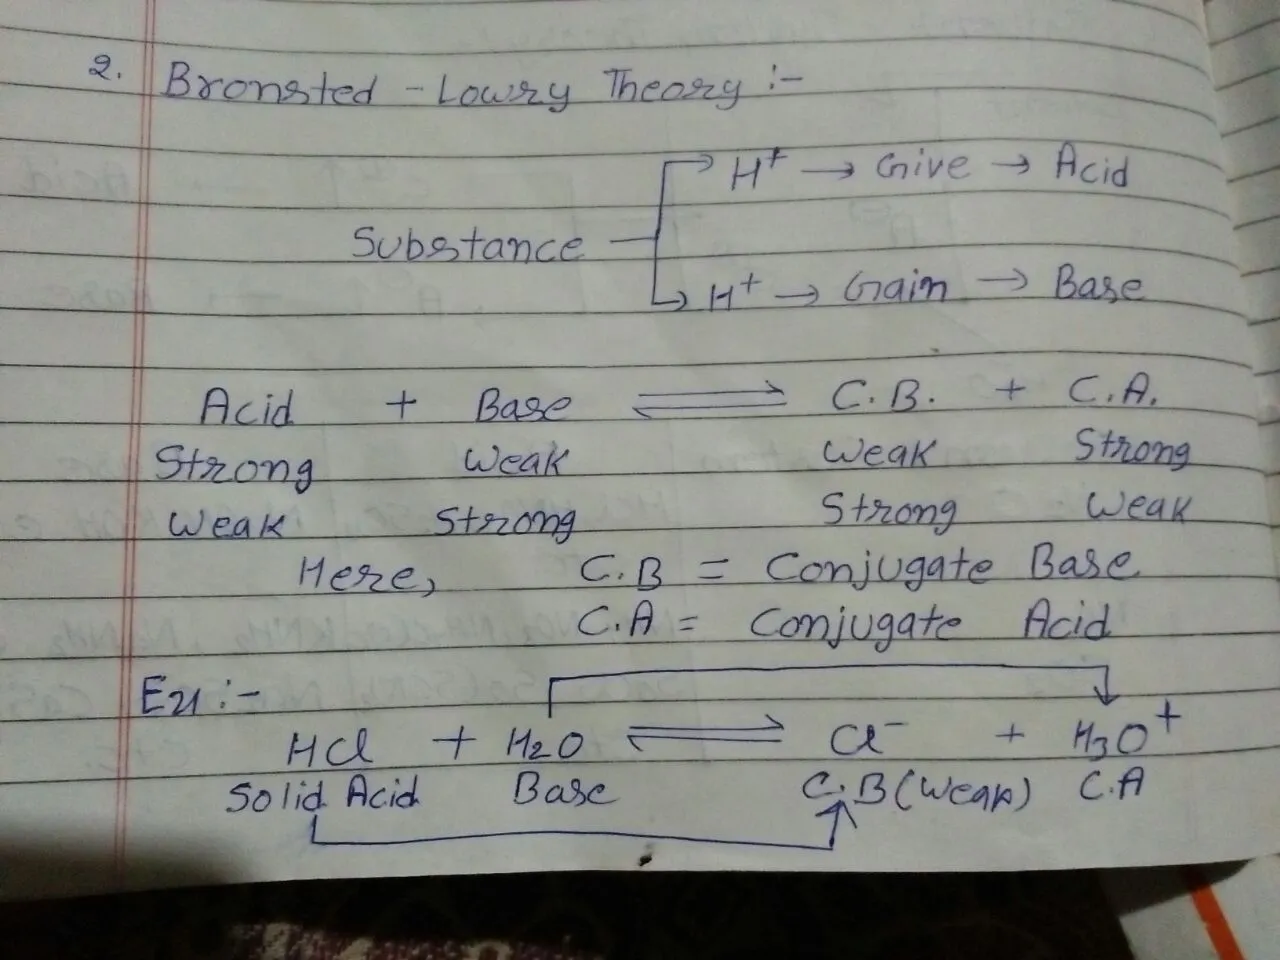 2. Bronsted - Lowry Theory :-
H⁺ → Give → Acid
Substance
H⁺ → Gain → Base
Acid + Base ⇌ C.B. + C.A.
Strong Weak Weak Strong
Weak Strong Strong Weak
Here, C.B = Conjugate Base
C.A = Conjugate Acid
Ex :-
HCl + H2O ⇌ Cl⁻ + H3O⁺
Solid Acid Base C.B (Weak) C.A